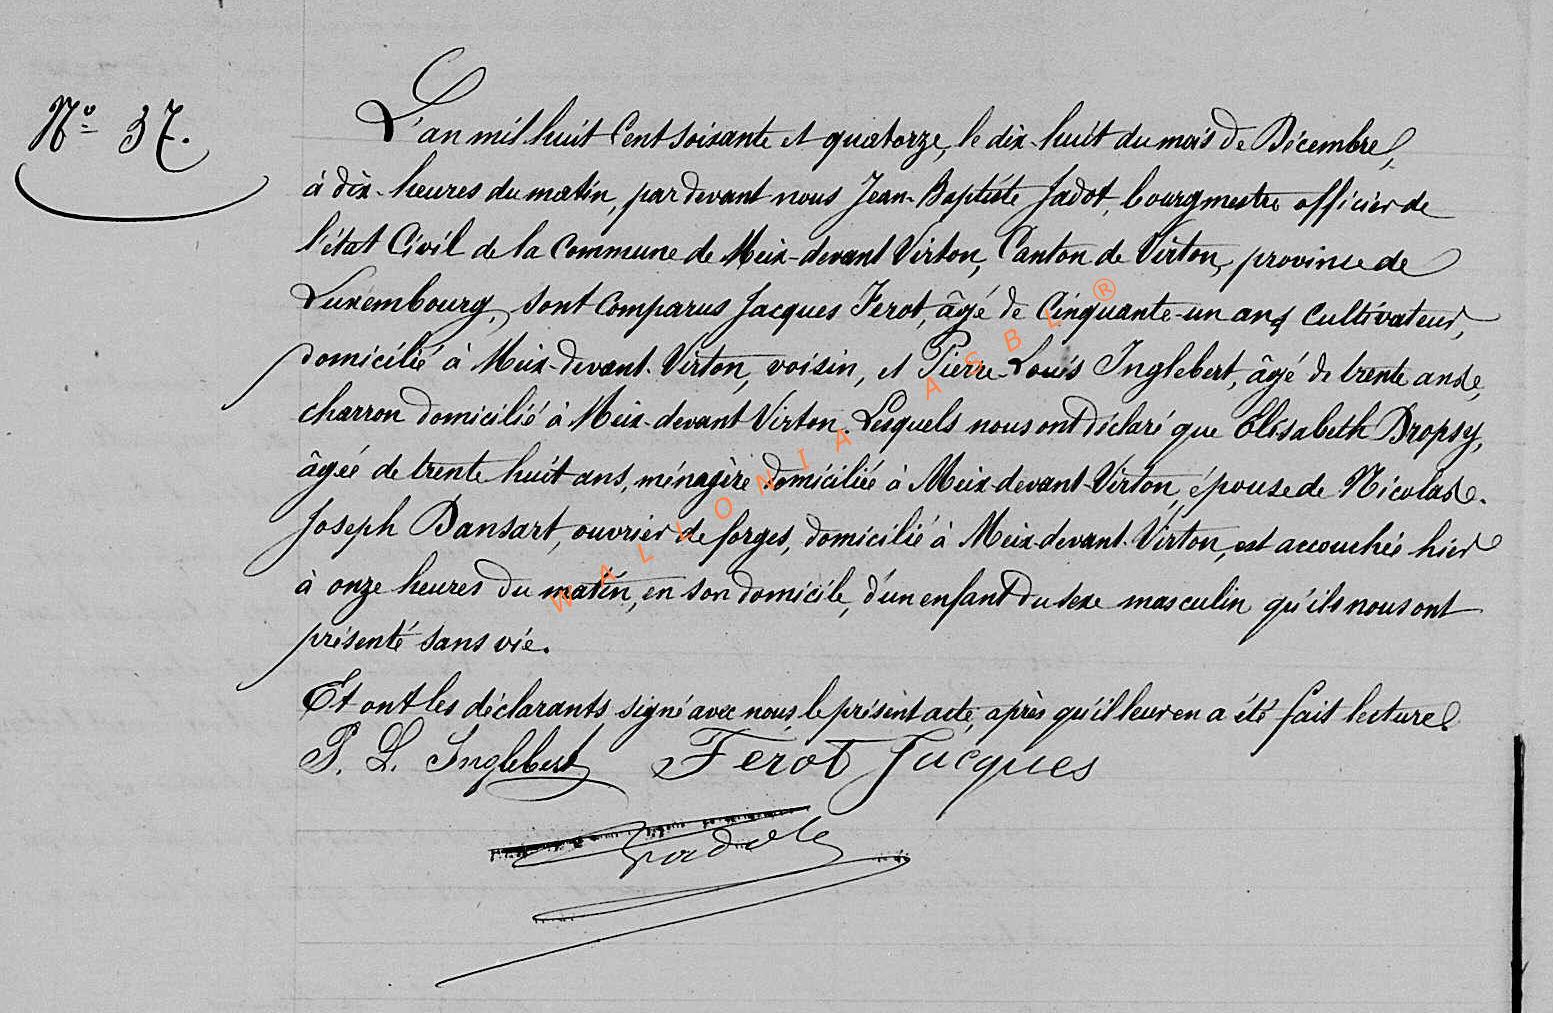 Nº 37.
L'an mil huit Cent soixante et quatorze, le dix-huit du mois de Décembre,
à dix-heures du matin, par devant nous Jean-Baptiste Jadot, bourgmestre officier de
l'état Civil de la Commune de Meix-devant Virton, Canton de Virton, province de
Luxembourg, sont Comparus Jacques Ferot, âgé de Cinquante-un ans, Cultivateur,
domicilié à Meix-devant-Virton, voisin, et Pierre Louis Inglebert, âgé de trente ans,
charron domicilié à Meix-devant Virton. Lesquels nous ont déclaré que Elisabeth Dropsy,
âgée de trente huit ans, ménagère domiciliée à Meix-devant-Virton, épouse de Nicolas
Joseph Dansart, ouvrier de forges, domicilié à Meix-devant-Virton, est accouchée hier
à onze heures du matin, en son domicile, d'un enfant du sexe masculin qu'ils nous ont
présenté sans vie.
Et ont les déclarants signé avec nous, le présent acte, après qu'il leur en a été fait lecture.
P. L. Inglebert Ferot Jacques
WALLONIA ASBL ®